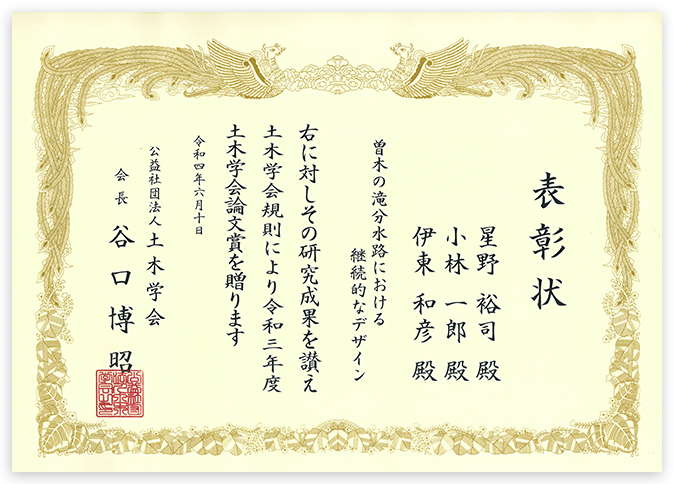 表彰状
星野 裕司 殿
小林 一郎 殿
伊東 和彦 殿
曽木の滝分水路における
継続的なデザイン
右に対しその研究成果を讃え
土木学会規則により令和三年度
土木学会論文賞を贈ります
令和四年六月十日
公益社団法人 土木学会
会長 谷口博昭